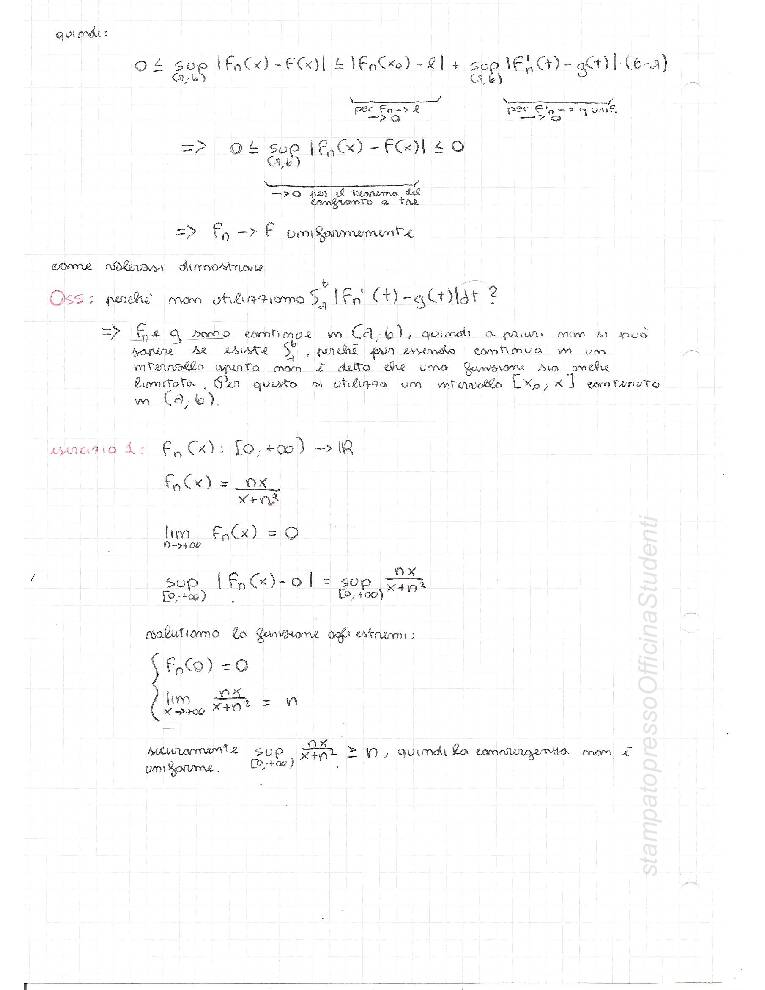 quindi:
0 ≤ sup |fn(x) - f(x)| ≤ |fn(x0) - l| + sup |f'n(t) - g(t)|·(b-a)
(a,b) (a,b)
per fn -> l per f'n -> g unif.
->0 ->0
=> 0 ≤ sup |fn(x) - f(x)| ≤ 0
(a,b)
->0 per il teorema del
confronto a tre
=> fn -> f uniformemente
come volevasi dimostrare
Oss: perché non utilizziamo ∫ₐᵇ |fn'(t) - g(t)|dt ?
=> fn e g sono continue in (a,b), quindi a priori non si può
sapere se esiste ∫ₐᵇ, perché pur essendo continua in un
intervallo aperto non è detto che una funzione sia anche
limitata. Per questo si utilizza un intervallo [x0, x] contenuto
in (a,b).
esercizio 1: fn(x): [0,+∞) -> IR
fn(x) = nx/(x+n²)
lim fn(x) = 0
n->+∞
sup |fn(x) - 0| = sup nx/(x+n²)
[0,+∞) [0,+∞)
valutiamo la funzione agli estremi:
{ fn(0) = 0
lim nx/(x+n²) = n
x->+∞
sicuramente sup nx/(x+n²) ≥ n, quindi la convergenza non è
[0,+∞)
uniforme.
stampatopressoOfficinaStudenti